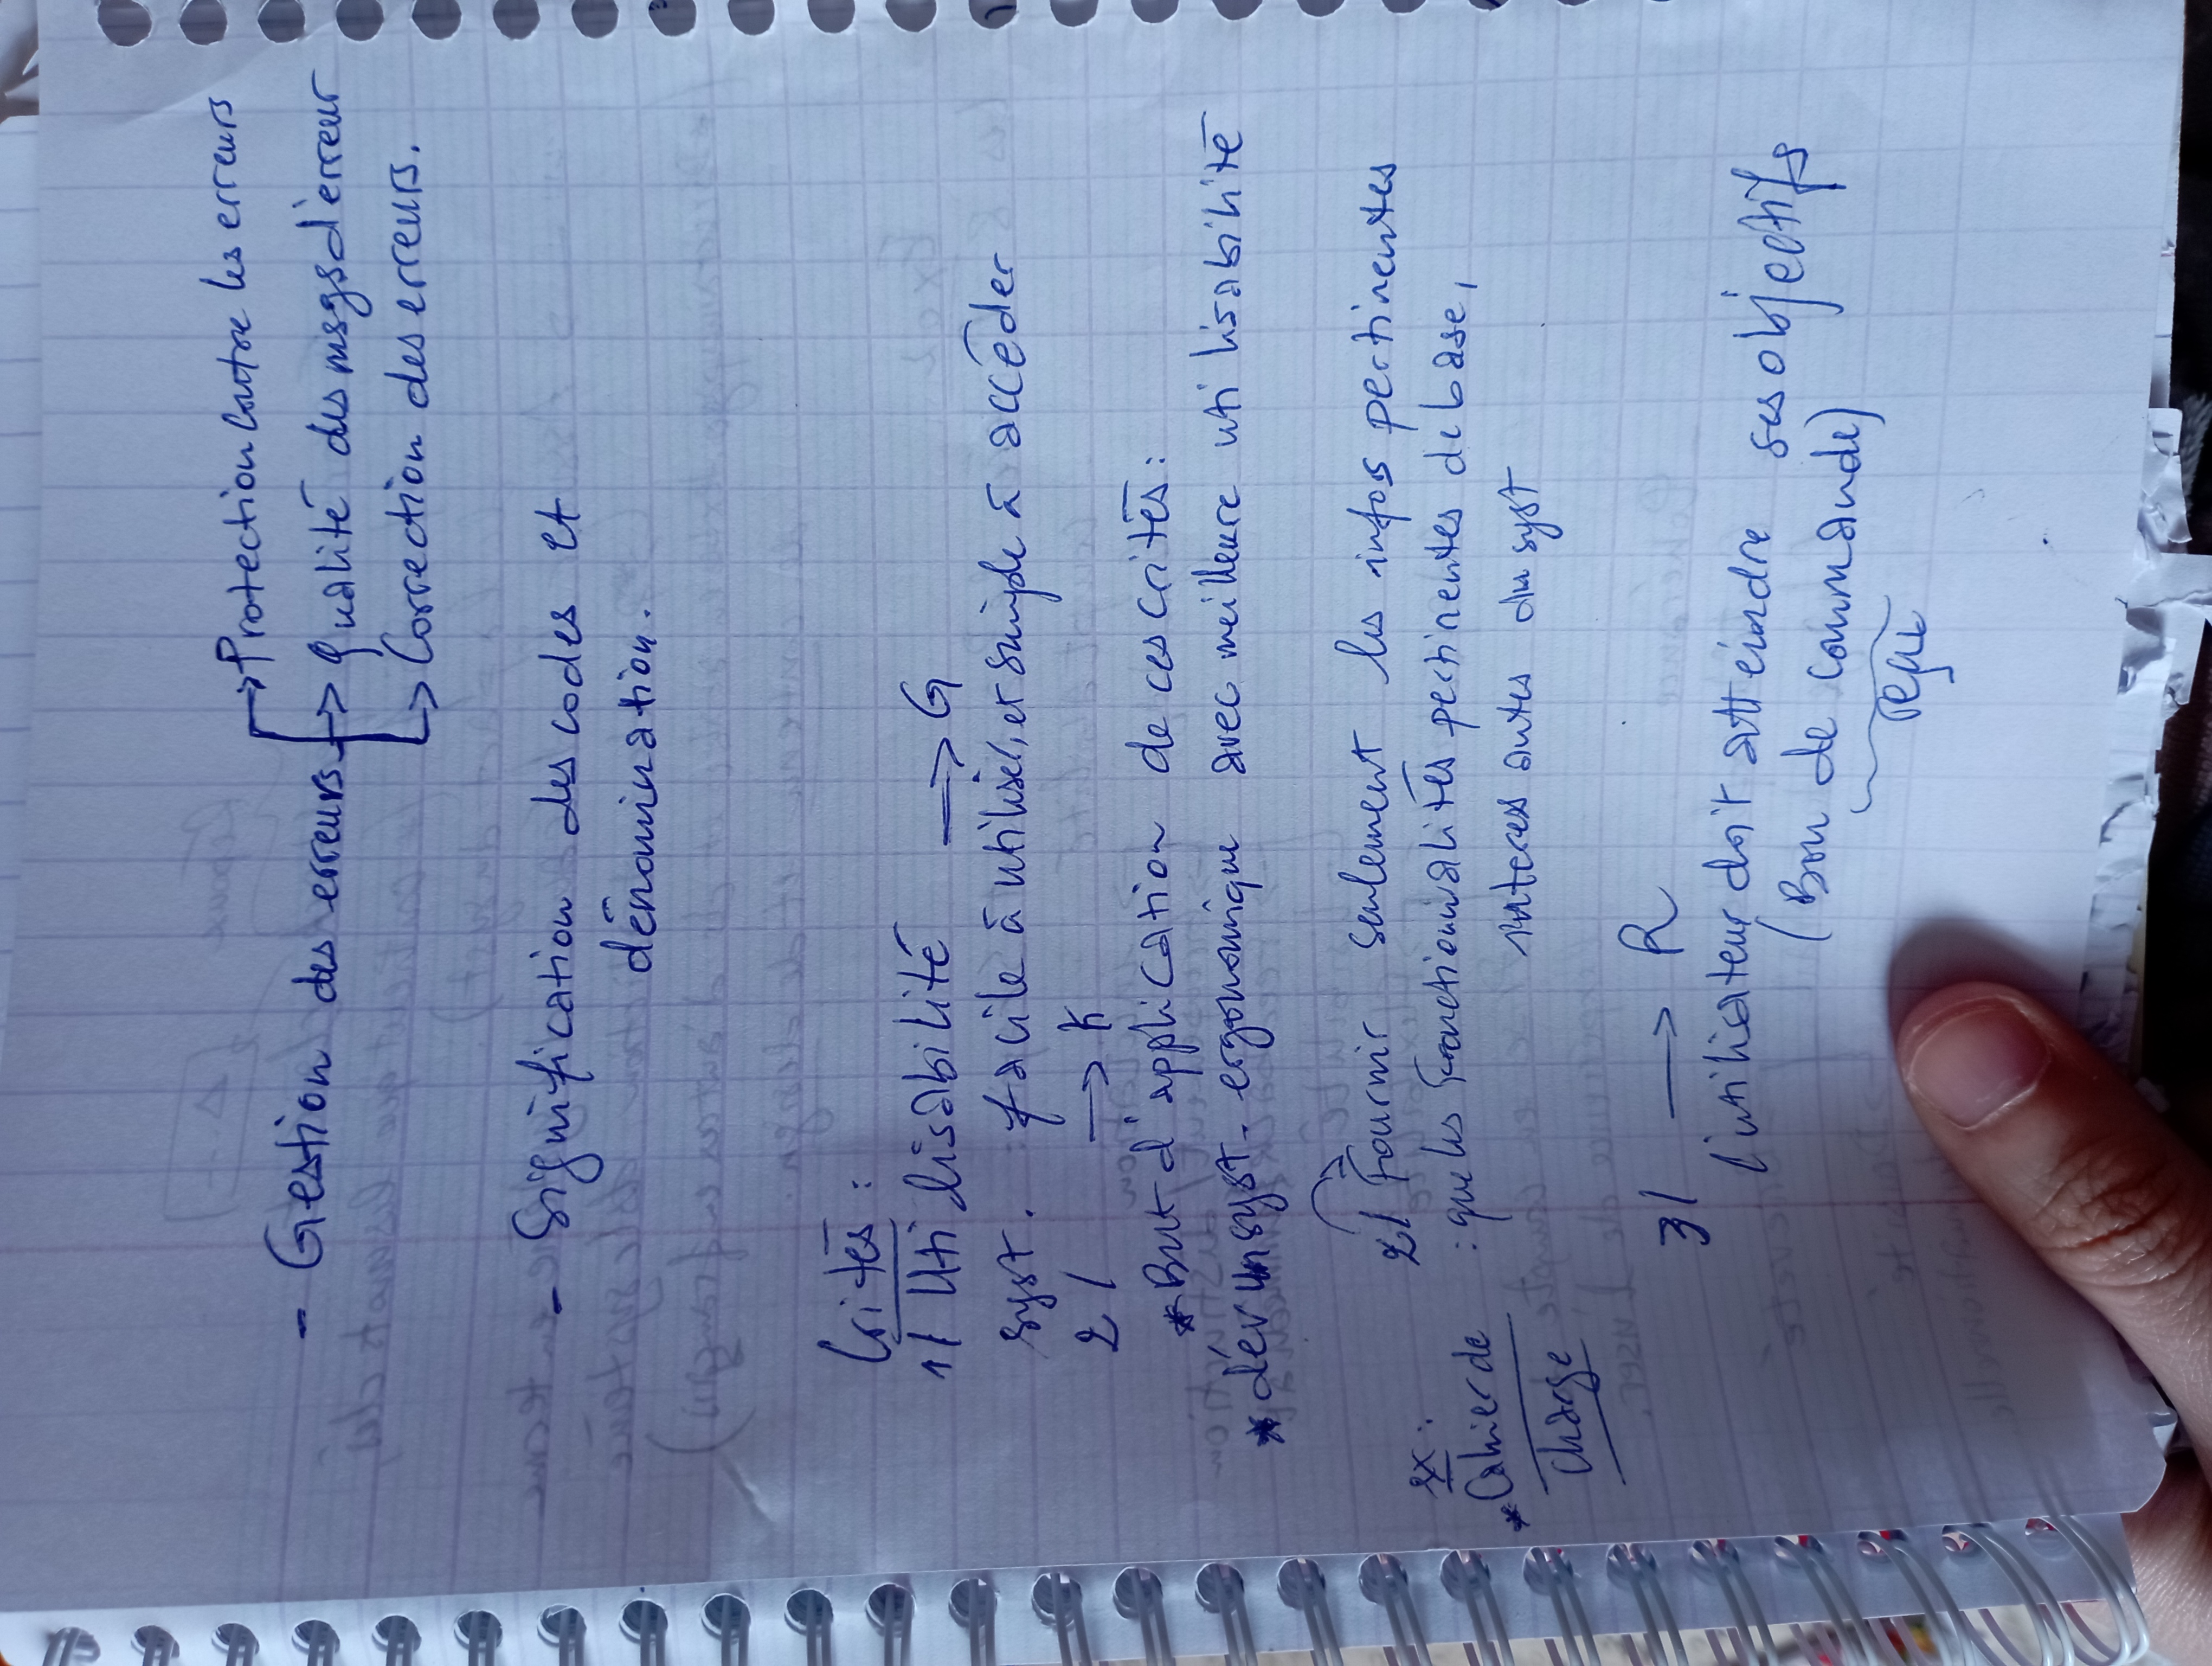 → Protection contre les erreurs
- Gestion des erreurs → Qualité des msgs d'erreur
→ Correction des erreurs.
- Signification des codes et
dénomination.
Crités :
1/ Utilisabilité → G
syst. : facile à utiliser, et simple à accéder
2/ → K
* But d'application de ces crités :
* dév un syst. ergonomique avec meilleure utilisabilité
2/ Fournir seulement les infos pertinentes
ex :
: que les Fonctionnalités pertinentes de base,
* Cahier de
interessantes du syst
charge
3/ → R
l'utilisateur doit atteindre ses objectifs
(Bon de commande)
reçu